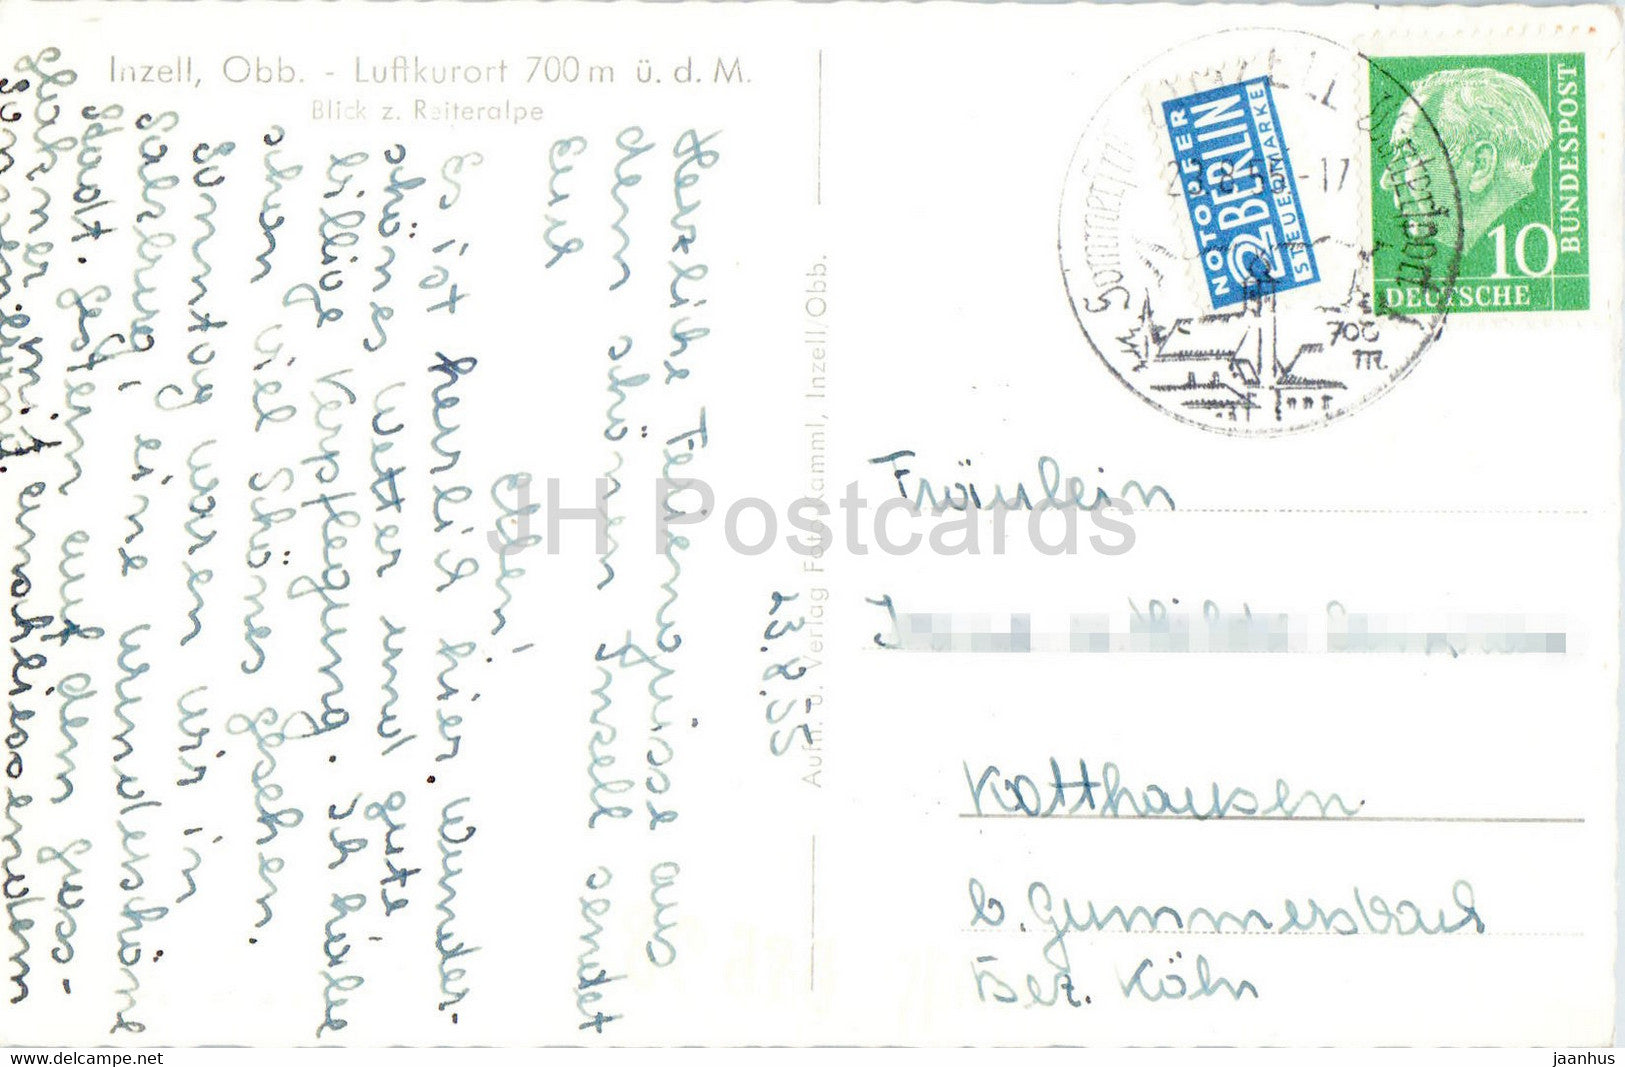 Inzell, Obb. - Luftkurort 700 m ü. d. M.
Blick z. Reiteralpe
23. 8. 55
Herzliche Feriengrüsse aus
dem schönen Inzell sendet
Eure
Ellen!
Es ist herrlich hier. Wunder-
schönes Wetter und gute
billige Verpflegung. Ich habe
schon viel Schönes gesehen.
Sonntag waren wir in
Salzburg, eine wunderschöne
Stadt. Gestern auf dem
mit anschliessendem
Aufn. u. Verlag Foto Kamml, Inzell/Obb.
INZELL Obb.
23.8.55-17
700
m
NOTOPFER
2 BERLIN
STEUERMARKE
10
DEUTSCHE
BUNDESPOST
Fräulein
Kotthausen
b. Gummersbach
Bez. Köln
JH Postcards
www.delcampe.net
jaanhus